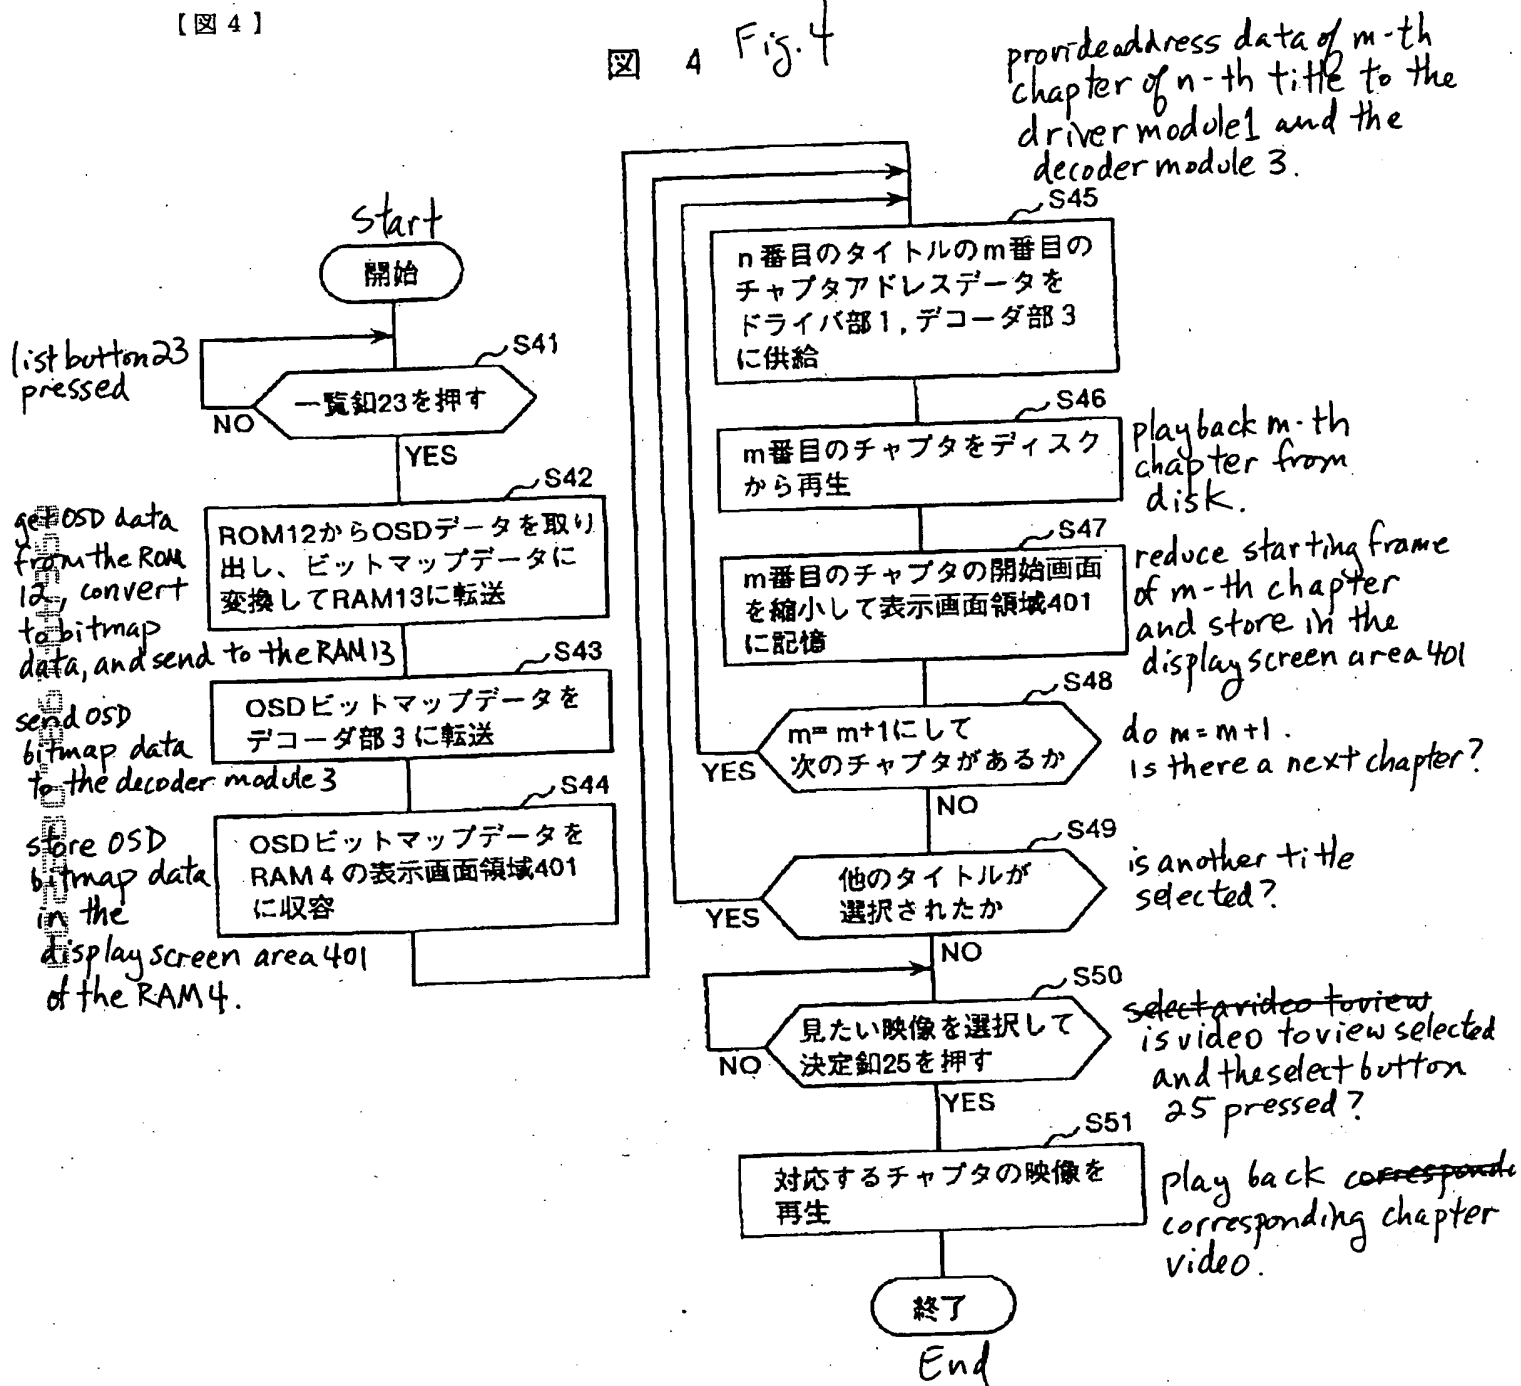 【図４】
図 4 Fig. 4
provide address data of m-th
chapter of n-th title to the
driver module 1 and the
decoder module 3.
start
開始
list button 23
pressed
S41
一覧釦23を押す
NO
YES
S42
get OSD data
from the ROM
12, convert
to bitmap
data, and send to the RAM 13
ROM12からOSDデータを取り
出し、ビットマップデータに
変換してRAM13に転送
S43
send OSD
bitmap data
to the decoder module 3
OSDビットマップデータを
デコーダ部３に転送
S44
store OSD
bitmap data
in the
display screen area 401
of the RAM 4.
OSDビットマップデータを
RAM４の表示画面領域401
に収容
S45
n番目のタイトルのm番目の
チャプタアドレスデータを
ドライバ部１,デコーダ部３
に供給
S46
m番目のチャプタをディスク
から再生
play back m-th
chapter from
disk.
S47
m番目のチャプタの開始画面
を縮小して表示画面領域401
に記憶
reduce starting frame
of m-th chapter
and store in the
display screen area 401
S48
m=m+1にして
次のチャプタがあるか
YES
NO
do m=m+1.
Is there a next chapter?
S49
他のタイトルが
選択されたか
YES
NO
is another title
selected?
S50
見たい映像を選択して
決定釦25を押す
NO
YES
select a video to view
is video to view selected
and the select button
25 pressed?
S51
対応するチャプタの映像を
再生
play back corresponde
corresponding chapter
video.
終了
End